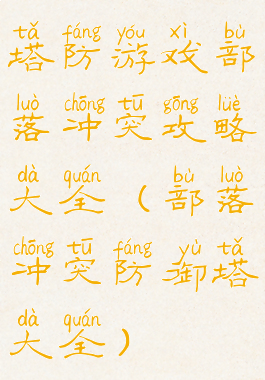 tǎ fáng yóu xì bù
塔防游戏部
luò chōng tū gōng lüè
落冲突攻略
dà quán bù luò
大全（部落
chōng tū fáng yù tǎ
冲突防御塔
dà quán
大全）